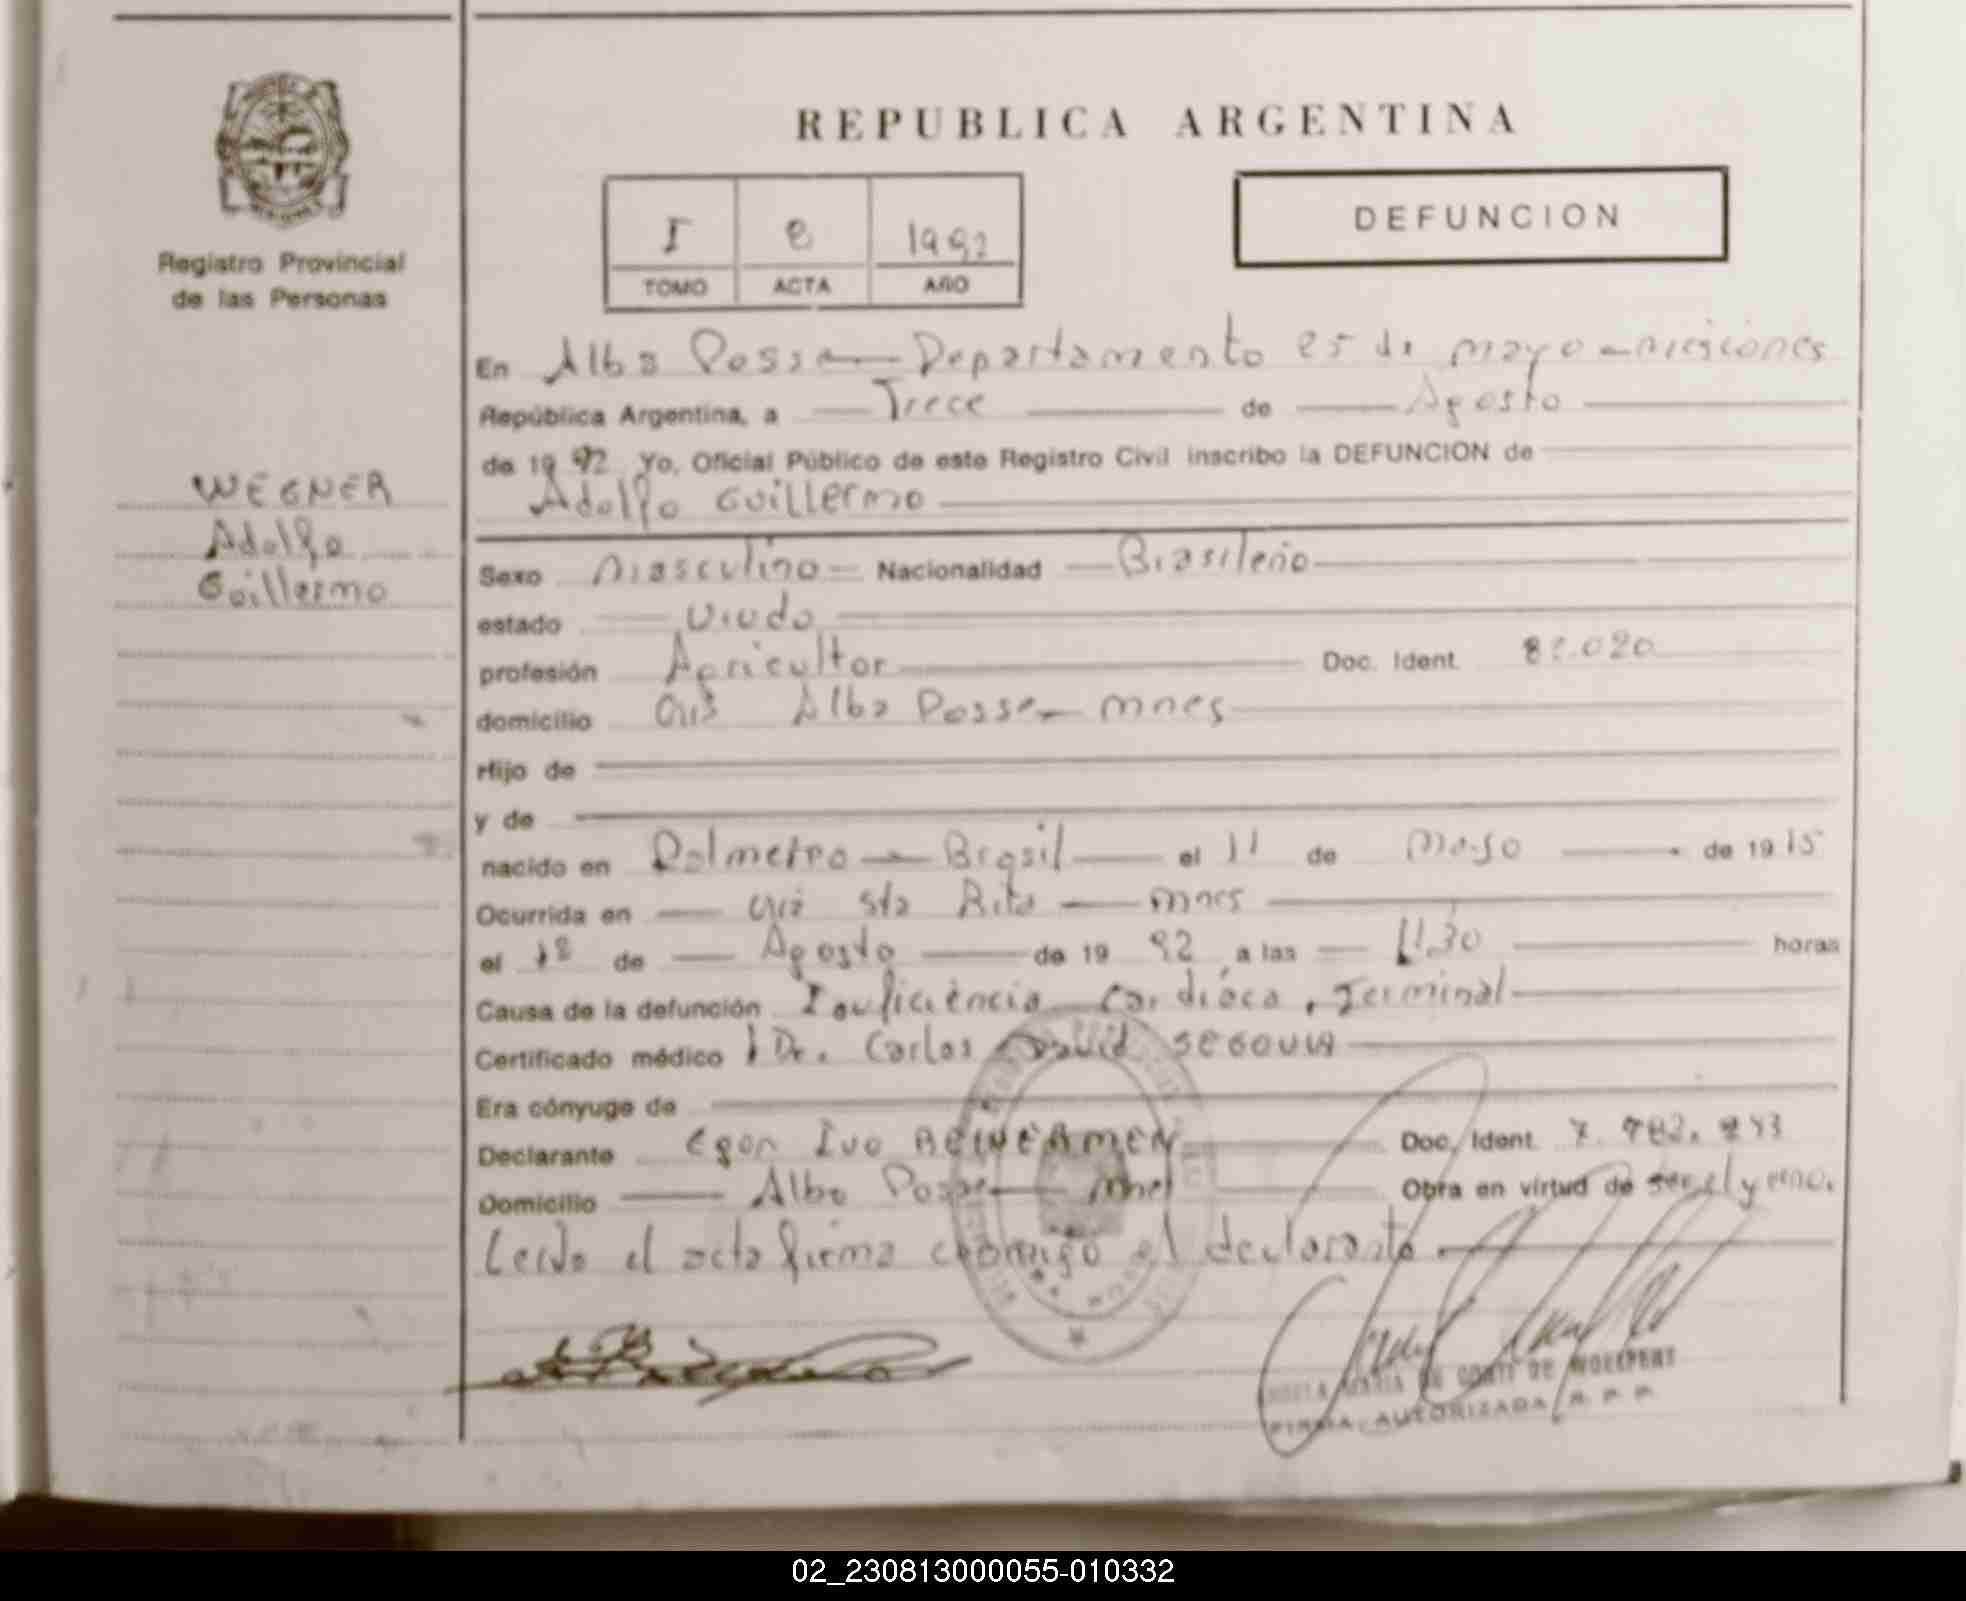 REPUBLICA ARGENTINA
DEFUNCION
I 1992
TOMO ACTA AÑO
Registro Provincial
de las Personas
WEGNER
Adolfo
Guillermo
En Alba Posse Departamento 25 de mayo - misiones
República Argentina, a Trece de Agosto
de 1992 Yo, Oficial Público de este Registro Civil inscribo la DEFUNCION de
Adolfo Guillermo
Sexo Masculino Nacionalidad Brasileño
estado Viudo
profesión Agricultor Doc. Ident.
domicilio Alba Posse mnes
Hijo de
y de
nacido en Brasil el 11 de Mayo de 1915
Ocurrida en Sta Rita mnes
el 12 de Agosto de 1992 a las 11,30 horas
Causa de la defunción cardíaca, Terminal
Certificado médico Dr. Carlos David SEGOVIA
Era cónyuge de
Declarante Egon Ivo Doc. Ident.
Domicilio Alba Posse mnes Obra en virtud de
Leida el acta firma conmigo el declarante.
MARIA DE DE
FIRMA AUTORIZADA R. P. P.
02_230813000055-010332